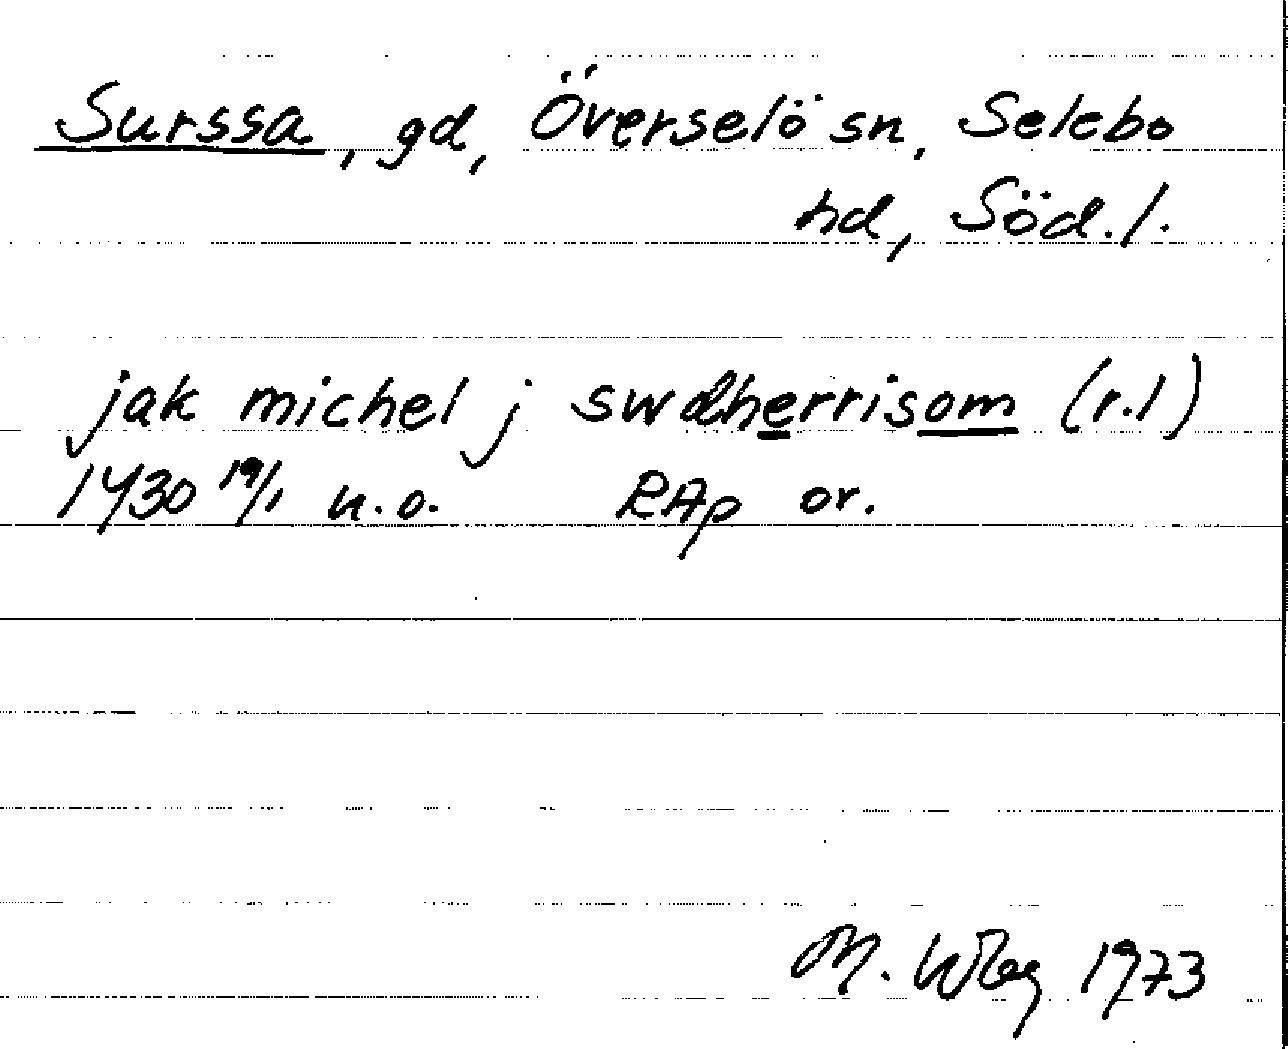 Surssa, gd, Överselö sn, Selebo
hd, Söd.l.
jak michel j swdherrisom (r.l)
1430 19/1 u.o. RAp or.
M. Wbg 1973